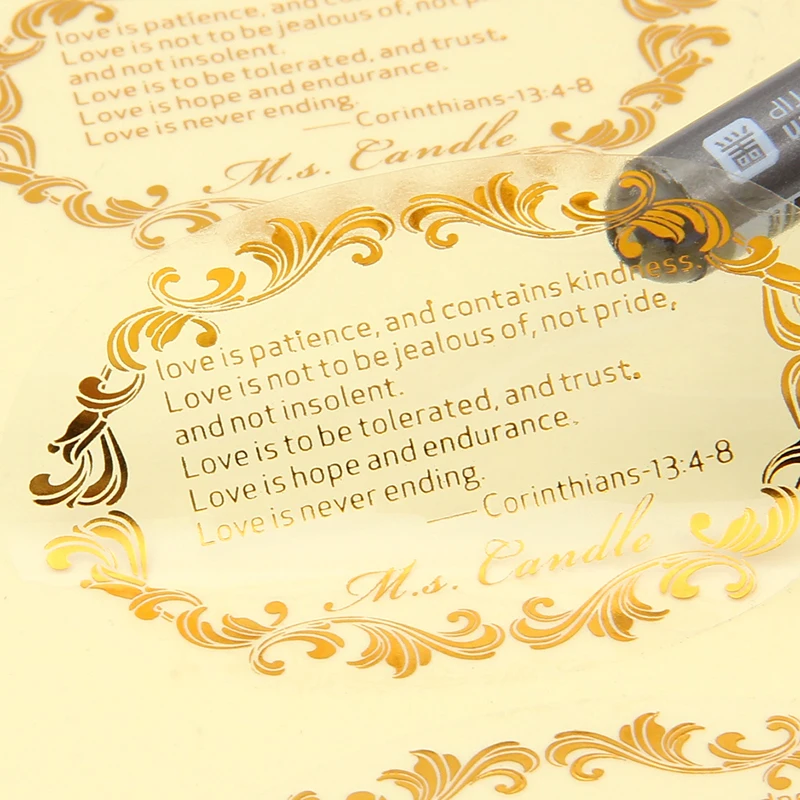 love is patience, and con
Love is not to be jealous of, not p
and not insolent.
Love is to be tolerated, and trust.
Love is hope and endurance.
Love is never ending.
——Corinthians-13:4-8
M.s. Candle
love is patience, and contains kindness.
Love is not to be jealous of, not pride,
and not insolent.
Love is to be tolerated, and trust.
Love is hope and endurance.
Love is never ending.
——Corinthians-13:4-8
M.s. Candle